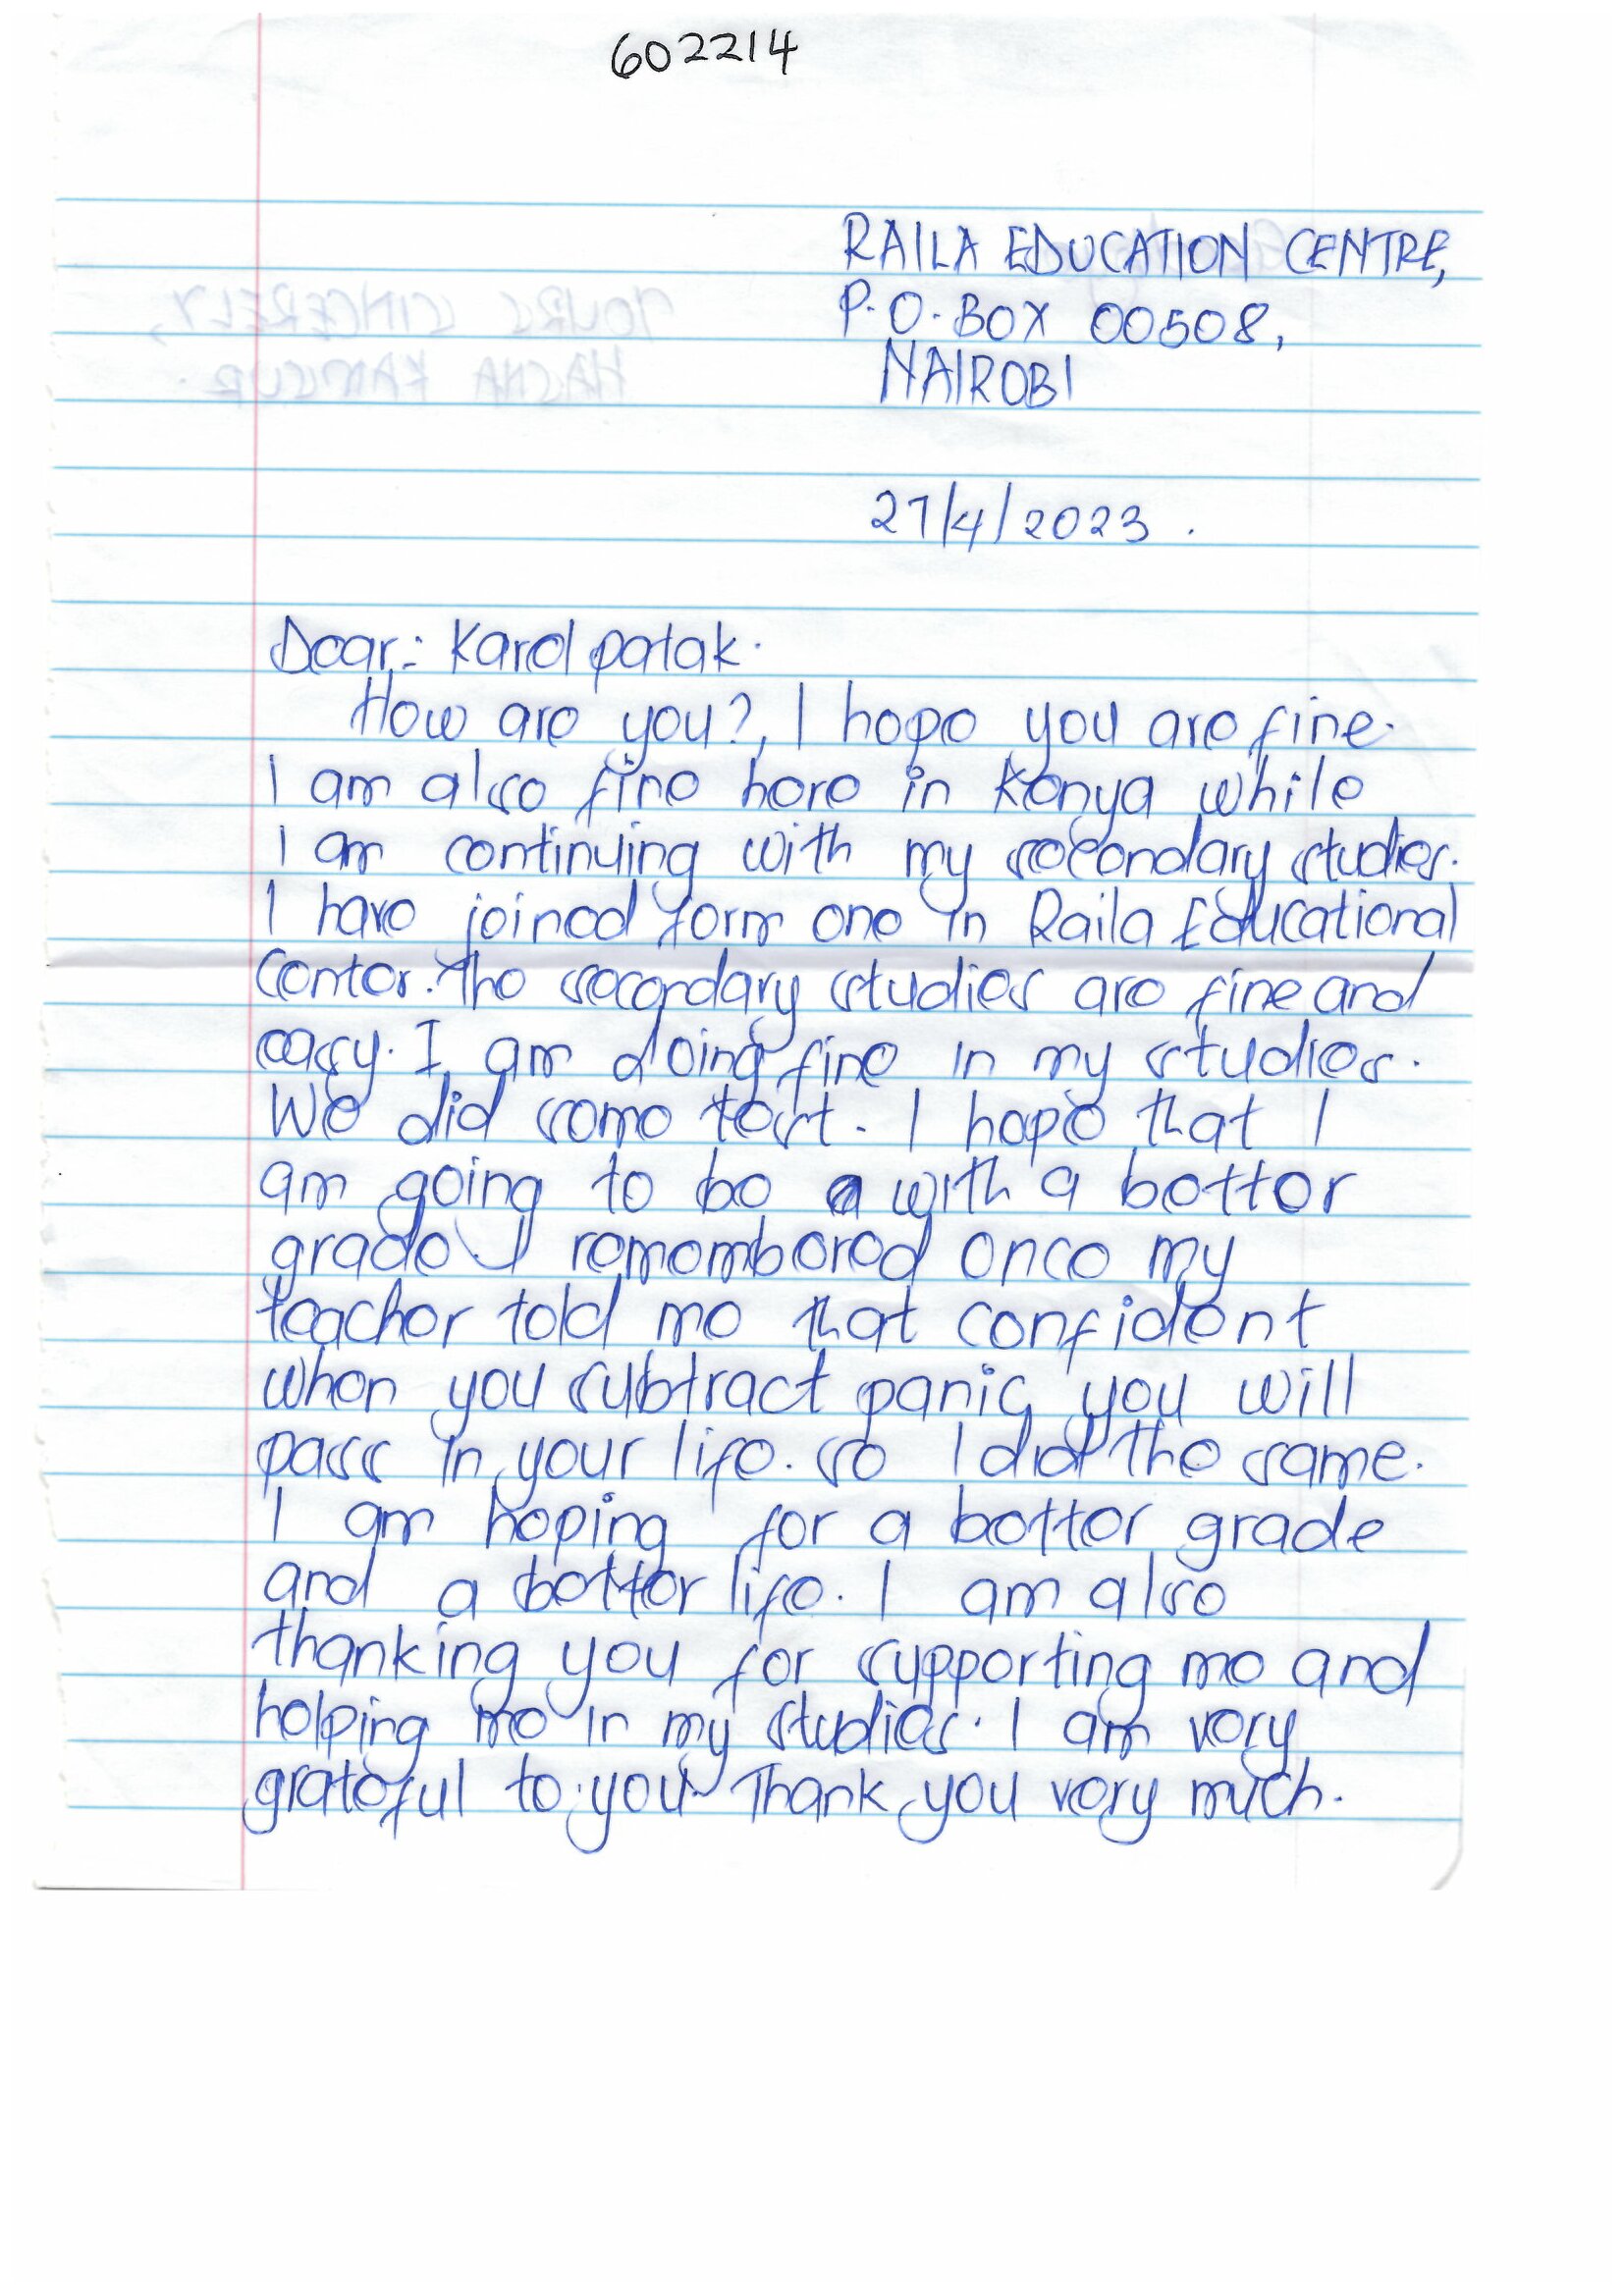 602214
RAILA EDUCATION CENTRE,
P.O. BOX 00508,
NAIROBI
27/4/2023.
Dear:- Karol patak.
How are you?, I hope you are fine.
I am also fine here in Kenya while
I am continuing with my secondary studies.
I have joined form one in Raila Educational
Center. The secondary studies are fine and
easy. I am doing fine in my studies.
We did some test. I hope that I
am going to be with a better
grade. I remembered once my
teacher told me that confident
when you subtract panic you will
pass in your life. so I did the same.
I am hoping for a better grade
and a better life. I am also
thanking you for supporting me and
helping me in my studies. I am very
grateful to you. Thank you very much.
YOURS SINCERELY,
HASNA